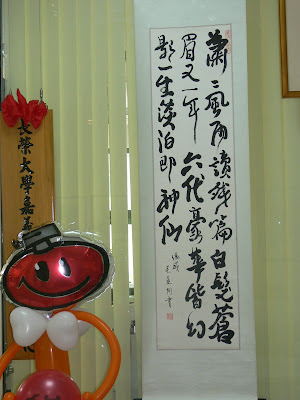 蕭々風雨讀殘篇白髮蒼
眉又一年 六代豪華皆幻
影一生淡泊即神仙
長榮大學嘉義